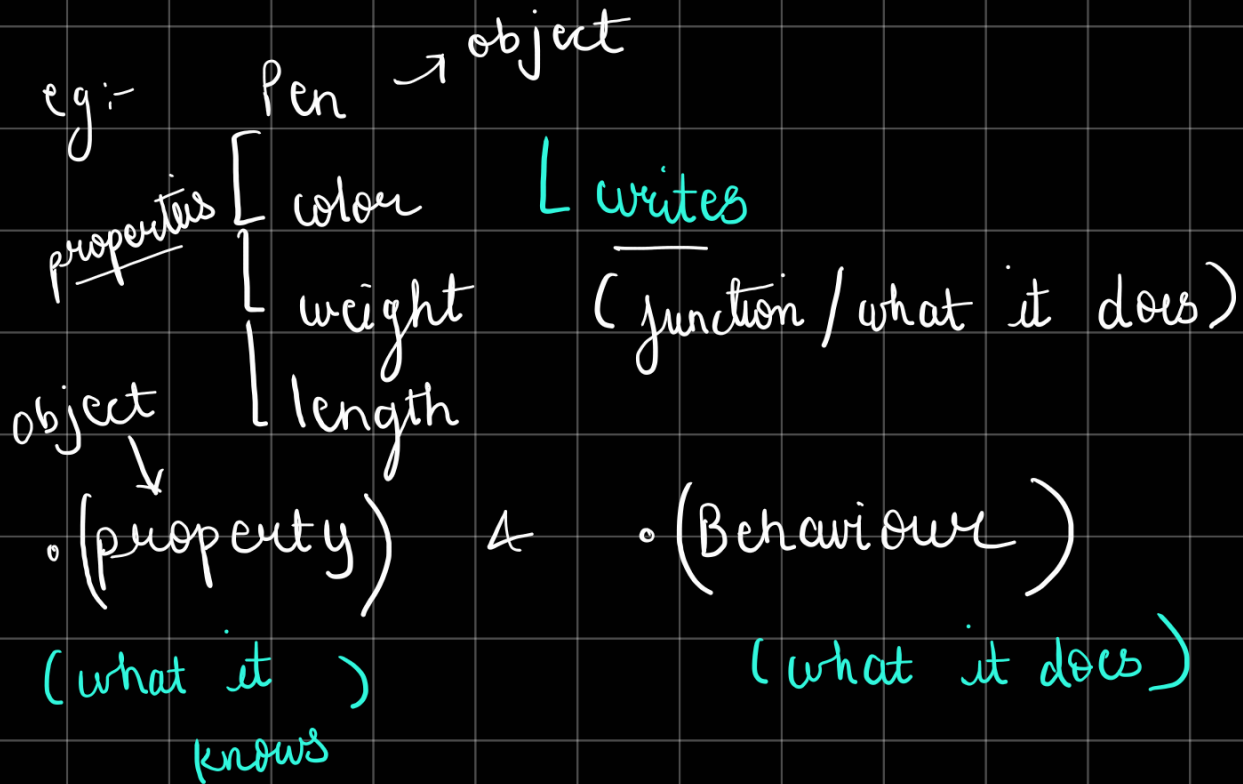 eg:- Pen → object
properties color writes
weight (function/what it does)
length
object
↓
• (property) & • (Behaviour)
(what it knows) (what it does)